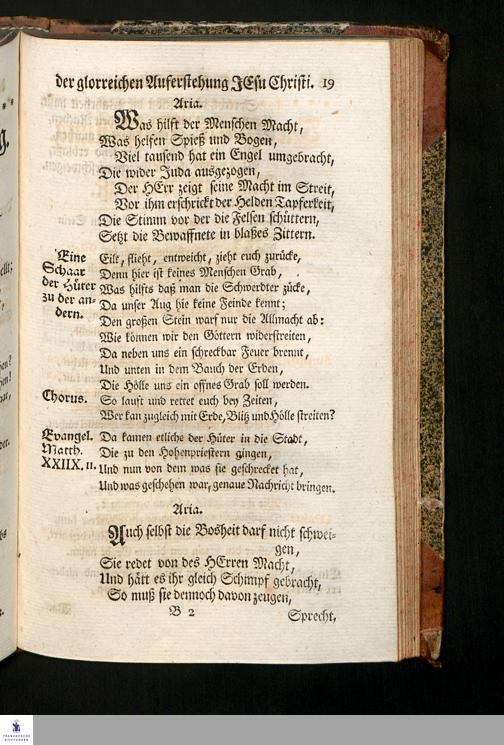 der glorreichen Auferstehung JEsu Christi. 19
Aria.
Was hilft der Menschen Macht,
Was helfen Spieß und Bogen,
Viel tausend hat ein Engel umgebracht,
Die wider Juda ausgezogen,
Der HErr zeigt seine Macht im Streit,
Vor ihm erschrickt der Helden Tapferkeit,
Die Stimm vor der die Felsen schüttern,
Setzt die Bewaffnete in blaßes Zittern.
Eine Schaar der Hüter zu der an-dern.
Eilt, flieht, entweicht, zieht euch zurücke,
Denn hier ist keines Menschen Grab,
Was hilfts daß man die Schwerdter zücke,
Da unser Aug hie keine Feinde kennt;
Den großen Stein warf nur die Allmacht ab:
Wie können wir den Göttern widerstreiten,
Da neben uns ein schreckbar Feuer brennt,
Und unten in dem Bauch der Erden,
Die Hölle uns ein offnes Grab soll werden.
Chorus. So lauft und rettet euch bey Zeiten,
Wer kan zugleich mit Erde, Blitz und Hölle streiten?
Evangel. Da kamen etliche der Hüter in die Stadt,
Matth. Die zu den Hohenpriestern giengen,
XXIIX, 11. Und nun von dem was sie geschrecket hat,
Und was geschehen war, genaue Nachricht bringen.
Aria.
Auch selbst die Bosheit darf nicht schwei-
gen,
Sie redet von des HErren Macht,
Und hätt es ihr gleich Schimpf gebracht,
So muß sie dennoch davon zeugen,
B 2
Sprecht,
FRANCKESCHE
STIFTUNGEN